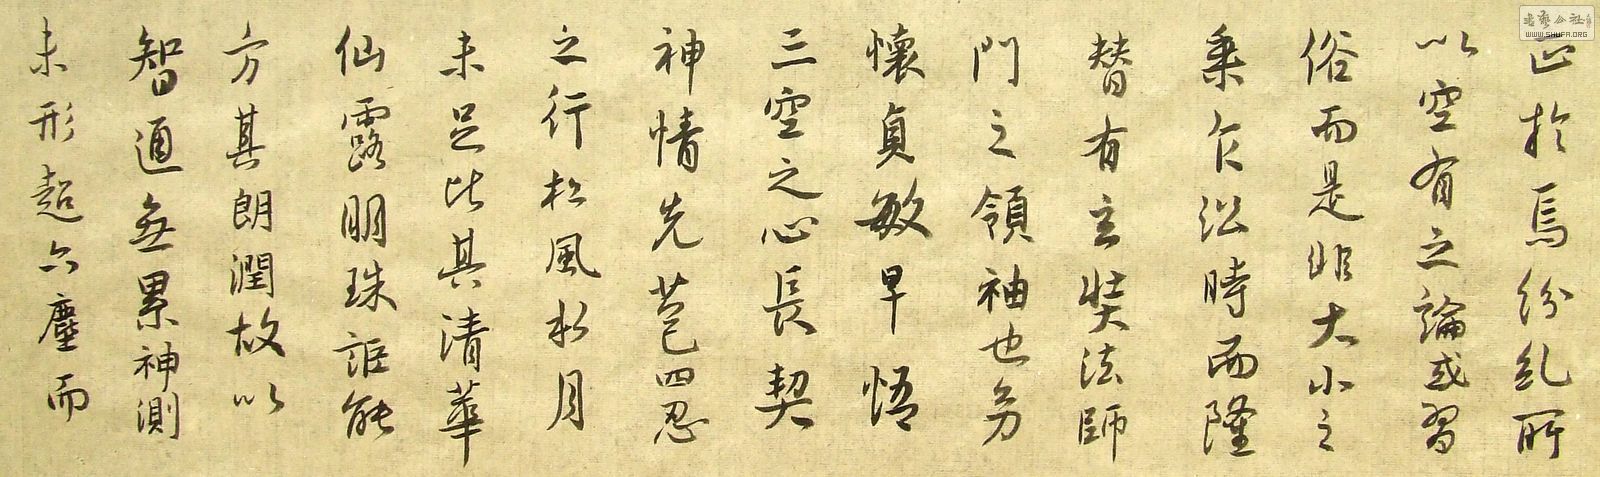 正於焉紛糺所
以空有之論或習
俗而是非大小之
乘乍沿時而隆
替有玄奘法師
門之領袖也幼
懷貞敏早悟
三空之心長契
神情先苞四忍
之行松風水月
未足比其清華
仙露明珠詎能
方其朗潤故以
智通無累神測
未形超六塵而
书艺公社
WWW.SHUFA.ORG